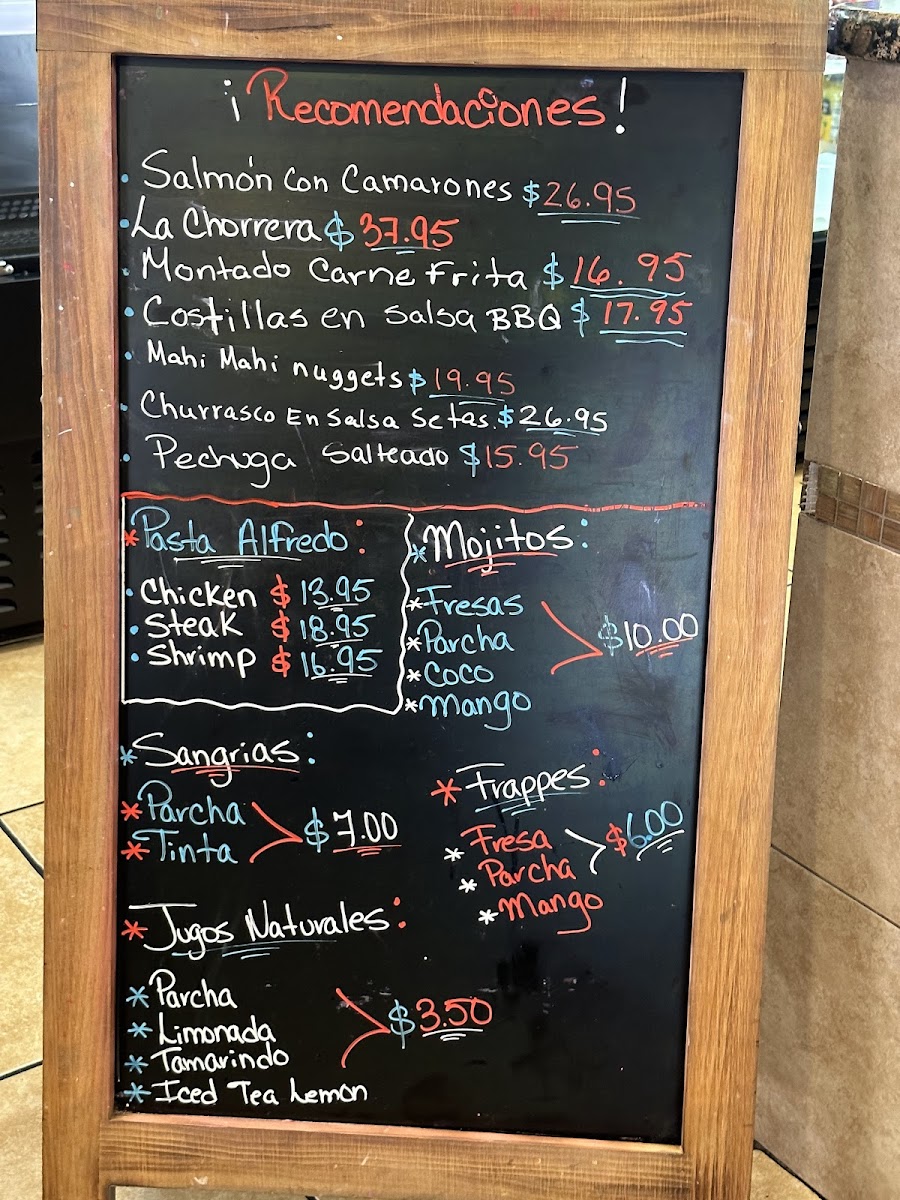 ¡Recomendaciones!
• Salmón Con Camarones $26.95
• La Chorrera $37.95
• Montado Carne Frita $16.95
• Costillas en salsa BBQ $17.95
• Mahi Mahi nuggets $19.95
• Churrasco En Salsa Setas $26.95
• Pechuga Salteado $15.95
* Pasta Alfredo:
• Chicken $13.95
• Steak $18.95
• Shrimp $16.95
* Mojitos:
* Fresas
* Parcha
* Coco
* Mango
$10.00
* Sangrias:
* Parcha
* Tinta
$7.00
* Frappes:
* Fresa
* Parcha
* Mango
$6.00
* Jugos Naturales:
* Parcha
* Limonada
* Tamarindo
* Iced Tea Lemon
$3.50